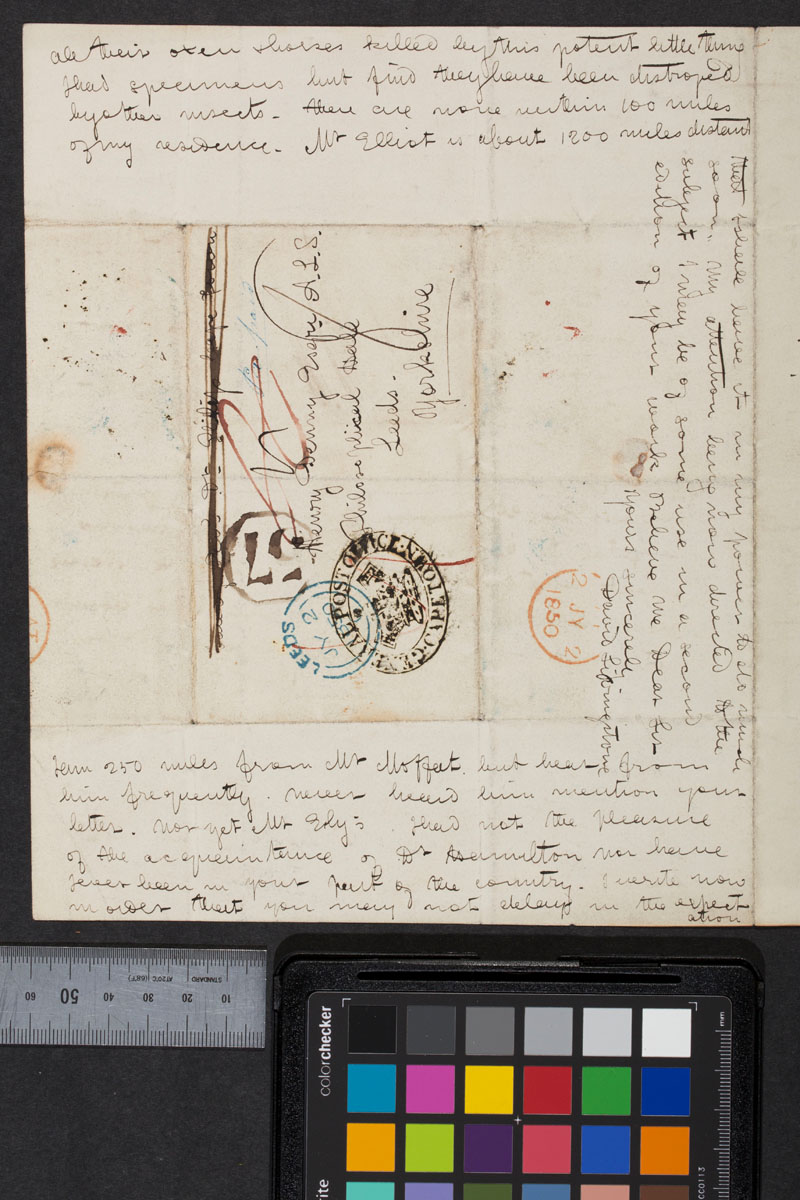 all their oxen & horses killed by this potent little thing
I had specimens but find they have been distroyed
by other insects - there are none within 100 miles
of my residence - Mr Elliot is about 1200 miles distant
I am 250 miles from Mr Moffat. but hear from
him frequently. never heard him mention your
letter. Nor yet Mr Ely's. I had not the pleasure
of the acquaintance of Dr Hamilton nor have
I ever been in your part of the country. I write now
in order that you may not delay in the expect
ation
that I shall have it in my power to do much
soon. My attention being now directed to the
subject I may be of some use in a second
edition of your work Believe me Dear Sir
Yours sincerely
David Livingstone
Henry Denny Esqr A.L.S.
Philosophical Hall
Leeds -
Yorkshire
LEEDS
JY 21
1850
GENERAL POST OFFICE
2 JY 2
1850
60 50 40 30 20 10
STANDARD
AT 20°C (68°F)
colorchecker
mm